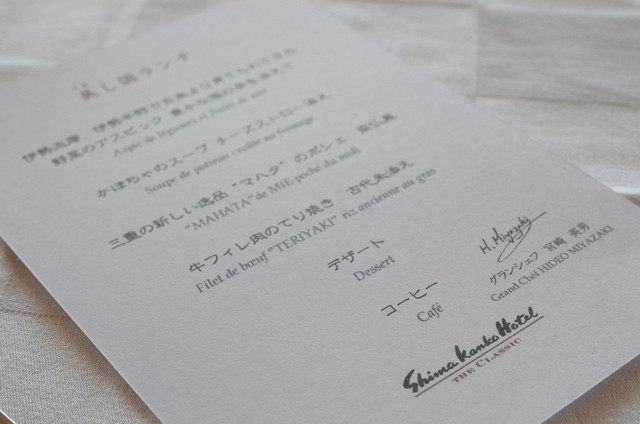 美し国ランチ
伊勢志摩、伊勢平野で古来より育てられてきた
野菜のアスピック 豊かな海の幸を添えて
Aspic de légumes et fruits de mer
かぼちゃのスープ チーズストロー添え
Soupe de potiron croûte au fromage
三重の新しい逸品 “マハタ” のポシェ 南仏風
“MAHATA” de MIE poché du midi
牛フィレ肉のてり焼き 古代米添え
Filet de bœuf “TERIYAKI” riz ancienne au gras
デザート
Dessert
コーヒー
Café
H. Miyazaki
グランシェフ 宮崎 英男
Grand Chef HIDEO MIYAZAKI
Shima Kanko Hotel
THE CLASSIC